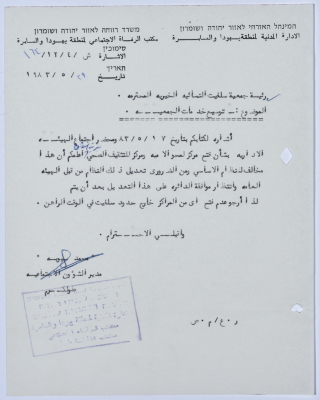 המינהל האזרחי לאזור יהודה ושומרון
الادارة المدنية لمنطقة يهودا والسامرة
משרד רווחה לאזור יהודה ושומרון
مكتب الرفاة الاجتماعي لمنطقة يهودا والسامرة
סימוכין
الاشارة ش /١٢/٤/
תאריך
تاريخ /٥/١٩٨٣
رئيسة جمعية سلفيت النسائية الخيرية المحترمه
الموضوع : توسيع خدمات الجمعيه
اشاره لكتابكم بتاريخ ٨٣/٥/١٧ ومحضر اجتماع الهيئه
الاداريه بشأن فتح مركز لمحو الاميه ومركز للتثقيف الصحي اعلمكم ان هذا
مخالف لنظام الاساسي ومن الضروري تعديل ذلك النظام من قبل الهيئه
العامه وانتظار موافقة الدائره على هذا التعديل بعد أن يتم
لذا أرجو عدم فتح اي من المراكز خارج حدود سلفيت في الوقت الراهن .
واقبلي الاحترام
مدير الشؤون الاجتماعيه
طولكرم
ر٠ع/م٠ص